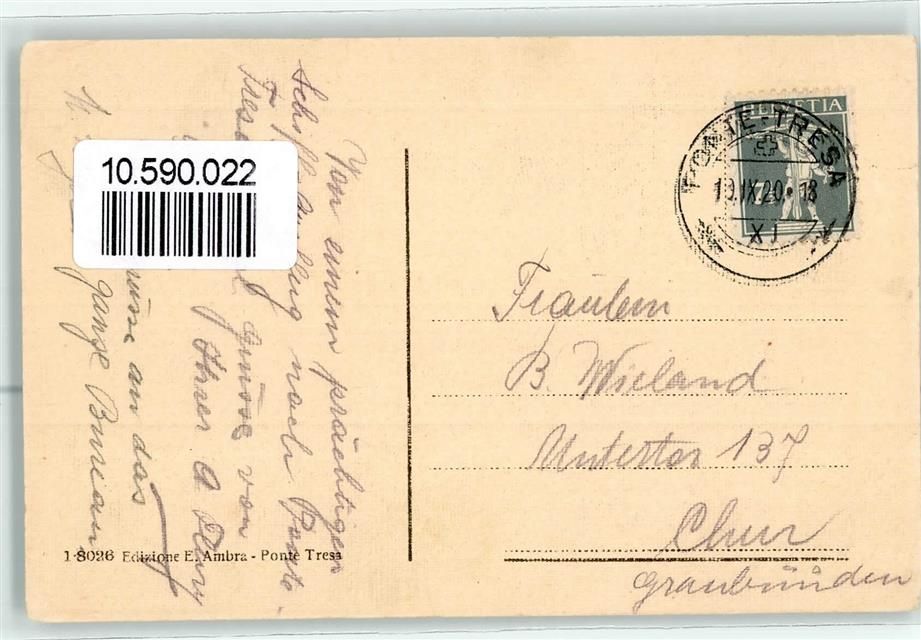 10.590.022
Von einem prächtigen
Schiffausflug nach Ponte-
Tresa Grüsse von
Ihrer A.
an das
ganze Bureau
HELVETIA
PONTE-TRESA
19.IX.20 • 18
XI
Fräulein
B. Wieland
Untertor 137
Chur
Graubünden
1-8026 Edizione E. Ambra - Ponte Tresa